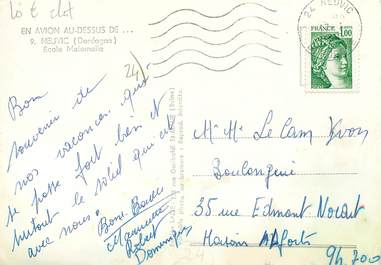 EN AVION AU-DESSUS DE ...
9. NEUVIC (Dordogne)
École Maternelle
24)
Bon
souvenir de
nos vacances qui
se passe fort bien et
surtout le soleil qui est
avec nous.
Bons Baisers
Robert
Dominique
24 NEUVIC
FRANCE
1,00
M. Mme Le Cam Yvon
Boulangerie
35 rue Edmont Nocart
Maisons Alfort
94.700